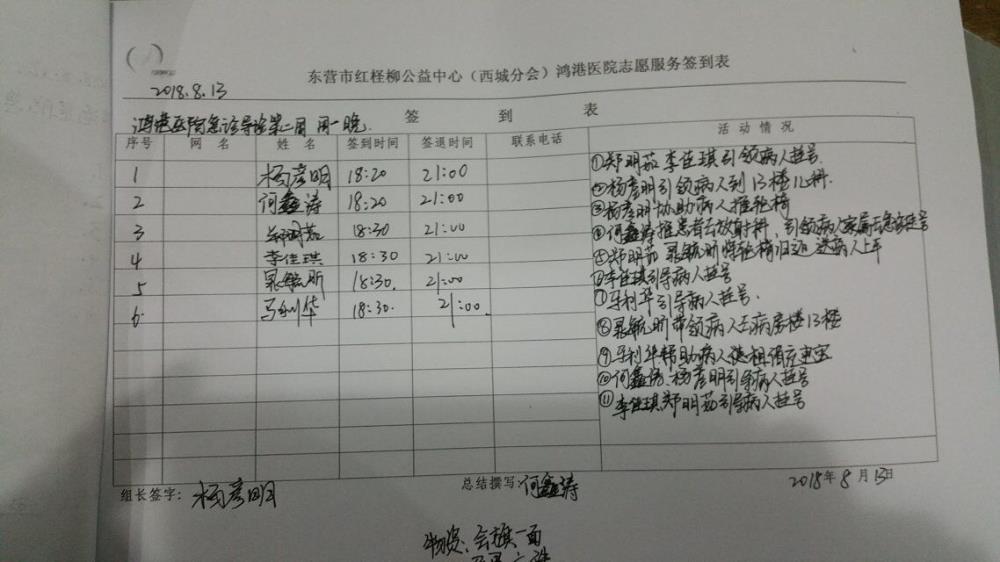 东营市红柽柳公益中心（西城分会）鸿港医院志愿服务签到表
2018.8.13
签到表
鸿港医院急诊导诊第二周 周一晚
序号 网名 姓名 签到时间 签退时间 联系电话 活动情况
1 杨彦明 18:20 21:00
2 何鑫涛 18:20 21:00
3 郑明茹 18:30 21:00
4 李佳琪 18:30 21:00
5 毓昕 18:30. 21:00
6 马利华 18:30. 21:00.
①郑明茹 李佳琪引领病人挂号.
②杨彦明引领病人到13楼儿科.
③杨彦明协助病人推轮椅
④何鑫涛推患者去放射科，引领病人家属去急诊挂号
⑤郑明茹 毓昕将轮椅归还 送病人上车
⑥李佳琪引导病人挂号
⑦马利华引导病人挂号.
⑧毓昕带领病人去病房楼13楼
⑨马利华帮助病人
⑩何鑫涛、杨彦明引导病人挂号
⑪李佳琪郑明茹引导病人挂号
组长签字：杨彦明 总结撰写：何鑫涛 2018年8月13日
物资：会旗一面